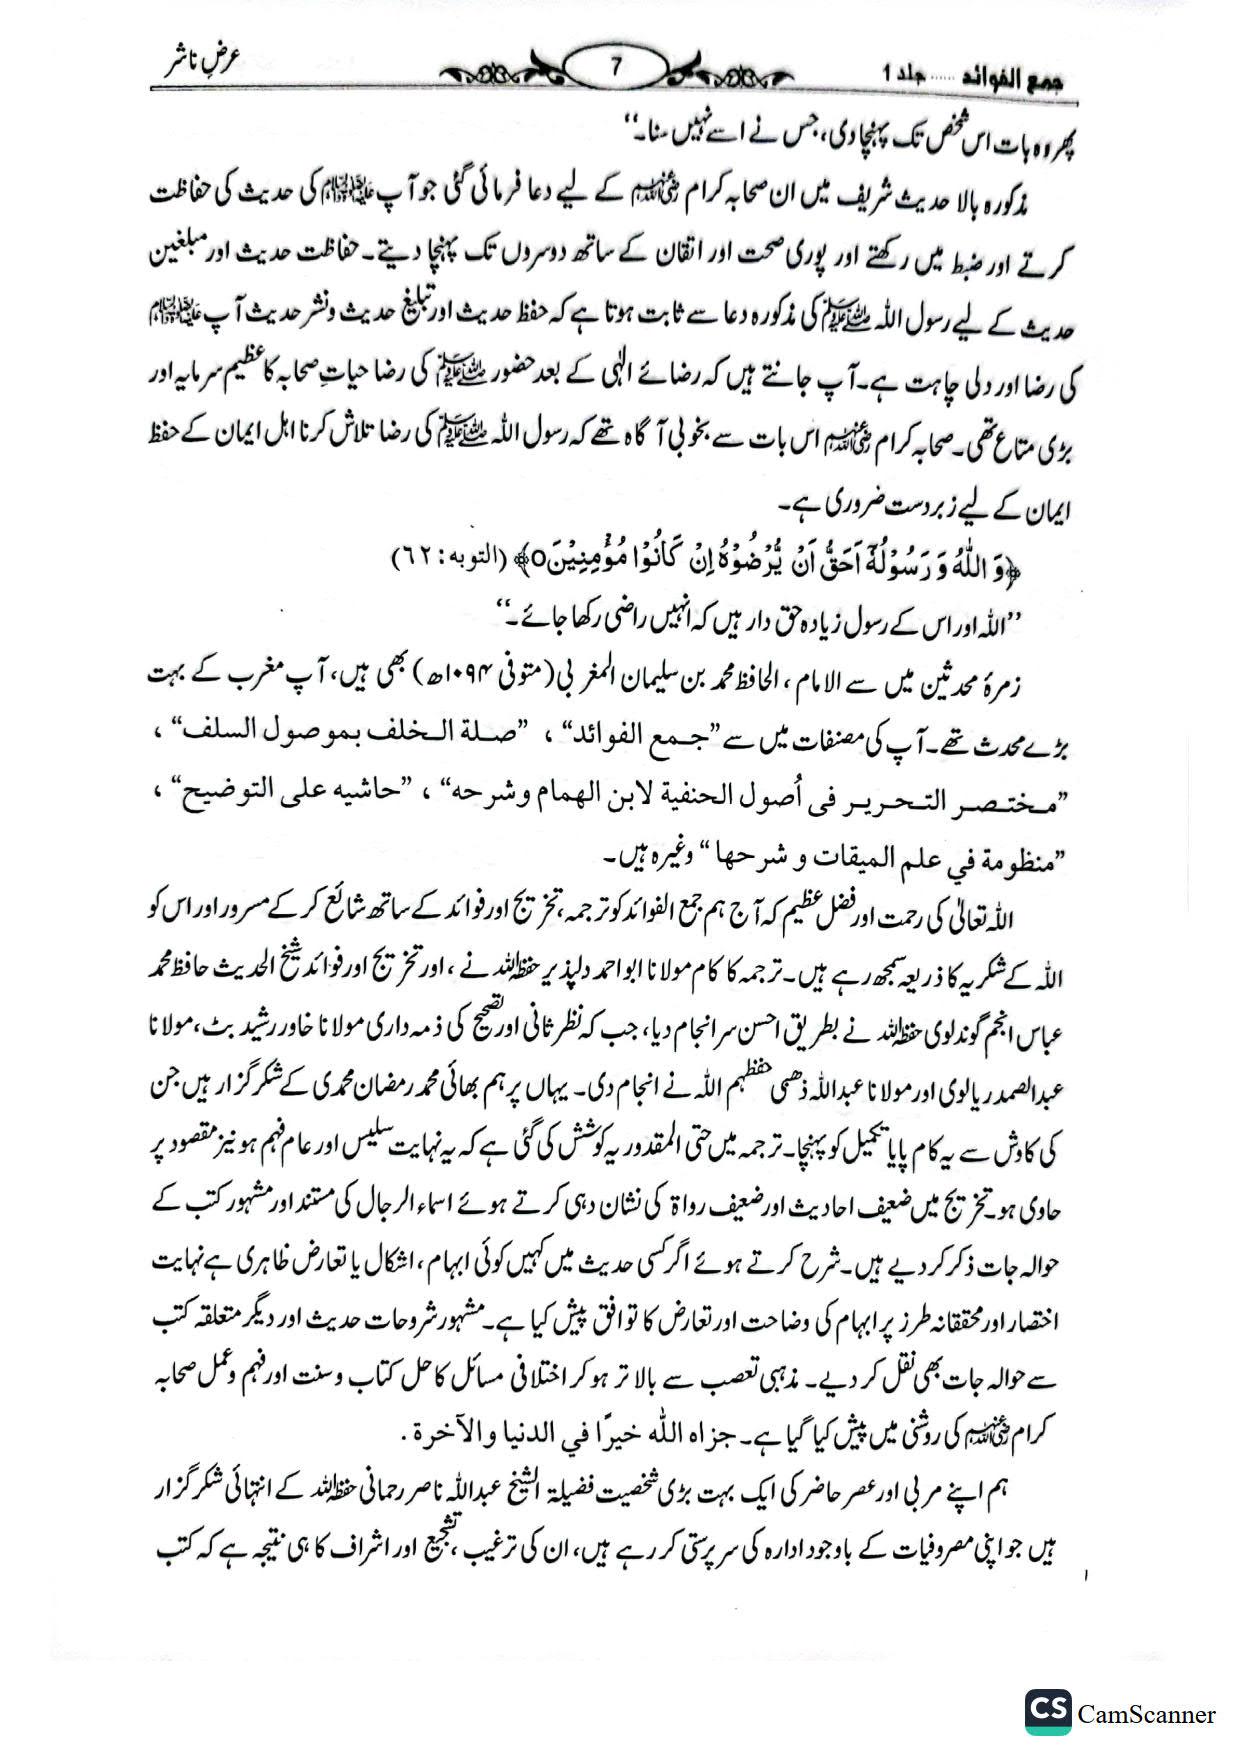 جمع الفوائد ..... جلد 1
7
عرضِ ناشر
پھر وہ بات اس شخص تک پہنچا دی، جس نے اسے نہیں سنا۔‘‘
مذکورہ بالا حدیث شریف میں ان صحابہ کرام رضی اللہ عنہم کے لیے دعا فرمائی گئی جو آپ صلی اللہ علیہ وسلم کی حدیث کی حفاظت
کرتے اور ضبط میں رکھتے اور پوری صحت اور اتقان کے ساتھ دوسروں تک پہنچا دیتے۔ حفاظت حدیث اور مبلغین
حدیث کے لیے رسول اللہ ﷺ کی مذکورہ دعا سے ثابت ہوتا ہے کہ حفظ حدیث اور تبلیغ حدیث ونشر حدیث آپ صلی اللہ علیہ وسلم
کی رضا اور دلی چاہت ہے۔ آپ جانتے ہیں کہ رضائے الٰہی کے بعد حضور ﷺ کی رضا حیاتِ صحابہ کا عظیم سرمایہ اور
بڑی متاع تھی۔ صحابہ کرام رضی اللہ عنہم اس بات سے بخوبی آگاہ تھے کہ رسول اللہ ﷺ کی رضا تلاش کرنا اہل ایمان کے حفظ
ایمان کے لیے زبردست ضروری ہے۔
﴿وَ اللّٰهُ وَ رَسُوْلُهٗۤ اَحَقُّ اَنْ يُّرْضُوْهُ اِنْ كَانُوْا مُؤْمِنِيْنَ○﴾ (التوبہ: ٦٢)
’’اللہ اور اس کے رسول زیادہ حق دار ہیں کہ انہیں راضی رکھا جائے۔‘‘
زمرۂ محدثین میں سے الامام، الحافظ محمد بن سلیمان المغربی (متوفی ۱۰۹۴ھ) بھی ہیں، آپ مغرب کے بہت
بڑے محدث تھے۔ آپ کی مصنفات میں سے ”جمع الفوائد“ ، ”صلة الخلف بموصول السلف“ ،
”مختصر التحرير فى أصول الحنفية لابن الهمام وشرحه“ ، ”حاشيه على التوضيح“ ،
”منظومة في علم الميقات و شرحها“ وغیرہ ہیں۔
اللہ تعالیٰ کی رحمت اور فضل عظیم کہ آج ہم جمع الفوائد کو ترجمہ، تخریج اور فوائد کے ساتھ شائع کر کے مسرور اور اس کو
اللہ کے شکریہ کا ذریعہ سمجھ رہے ہیں۔ ترجمہ کا کام مولانا ابو احمد دلپذیر حفظہ اللہ نے، اور تخریج اور فوائد شیخ الحدیث حافظ محمد
عباس انجم گوندلوی حفظہ اللہ نے بطریق احسن سرانجام دیا، جب کہ نظر ثانی اور تصحیح کی ذمہ داری مولانا خاور رشید بٹ، مولانا
عبدالصمد ریالوی اور مولانا عبداللہ ذھبی حفظہم اللہ نے انجام دی۔ یہاں پر ہم بھائی محمد رمضان محمدی کے شکر گزار ہیں جن
کی کاوش سے یہ کام پایا تکمیل کو پہنچا۔ ترجمہ میں حتی المقدور یہ کوشش کی گئی ہے کہ یہ نہایت سلیس اور عام فہم ہو نیز مقصود پر
حاوی ہو۔ تخریج میں ضعیف احادیث اور ضعیف رواۃ کی نشان دہی کرتے ہوئے اسماء الرجال کی مستند اور مشہور کتب کے
حوالہ جات ذکر کر دیے ہیں۔ شرح کرتے ہوئے اگر کسی حدیث میں کہیں کوئی ابہام، اشکال یا تعارض ظاہری ہے نہایت
اختصار اور محققانہ طرز پر ابہام کی وضاحت اور تعارض کا توافق پیش کیا ہے۔ مشہور شروحات حدیث اور دیگر متعلقہ کتب
سے حوالہ جات بھی نقل کر دیے۔ مذہبی تعصب سے بالا تر ہو کر اختلافی مسائل کا حل کتاب و سنت اور فہم و عمل صحابہ
کرام رضی اللہ عنہم کی روشنی میں پیش کیا گیا ہے۔ جزاه الله خيرًا في الدنيا والآخرة .
ہم اپنے مربی اور عصر حاضر کی ایک بہت بڑی شخصیت فضیلۃ الشیخ عبداللہ ناصر رحمانی حفظہ اللہ کے انتہائی شکر گزار
ہیں جو اپنی مصروفیات کے باوجود ادارہ کی سرپرستی کر رہے ہیں، ان کی ترغیب، تشجیع اور اشراف کا ہی نتیجہ ہے کہ کتب
CS CamScanner